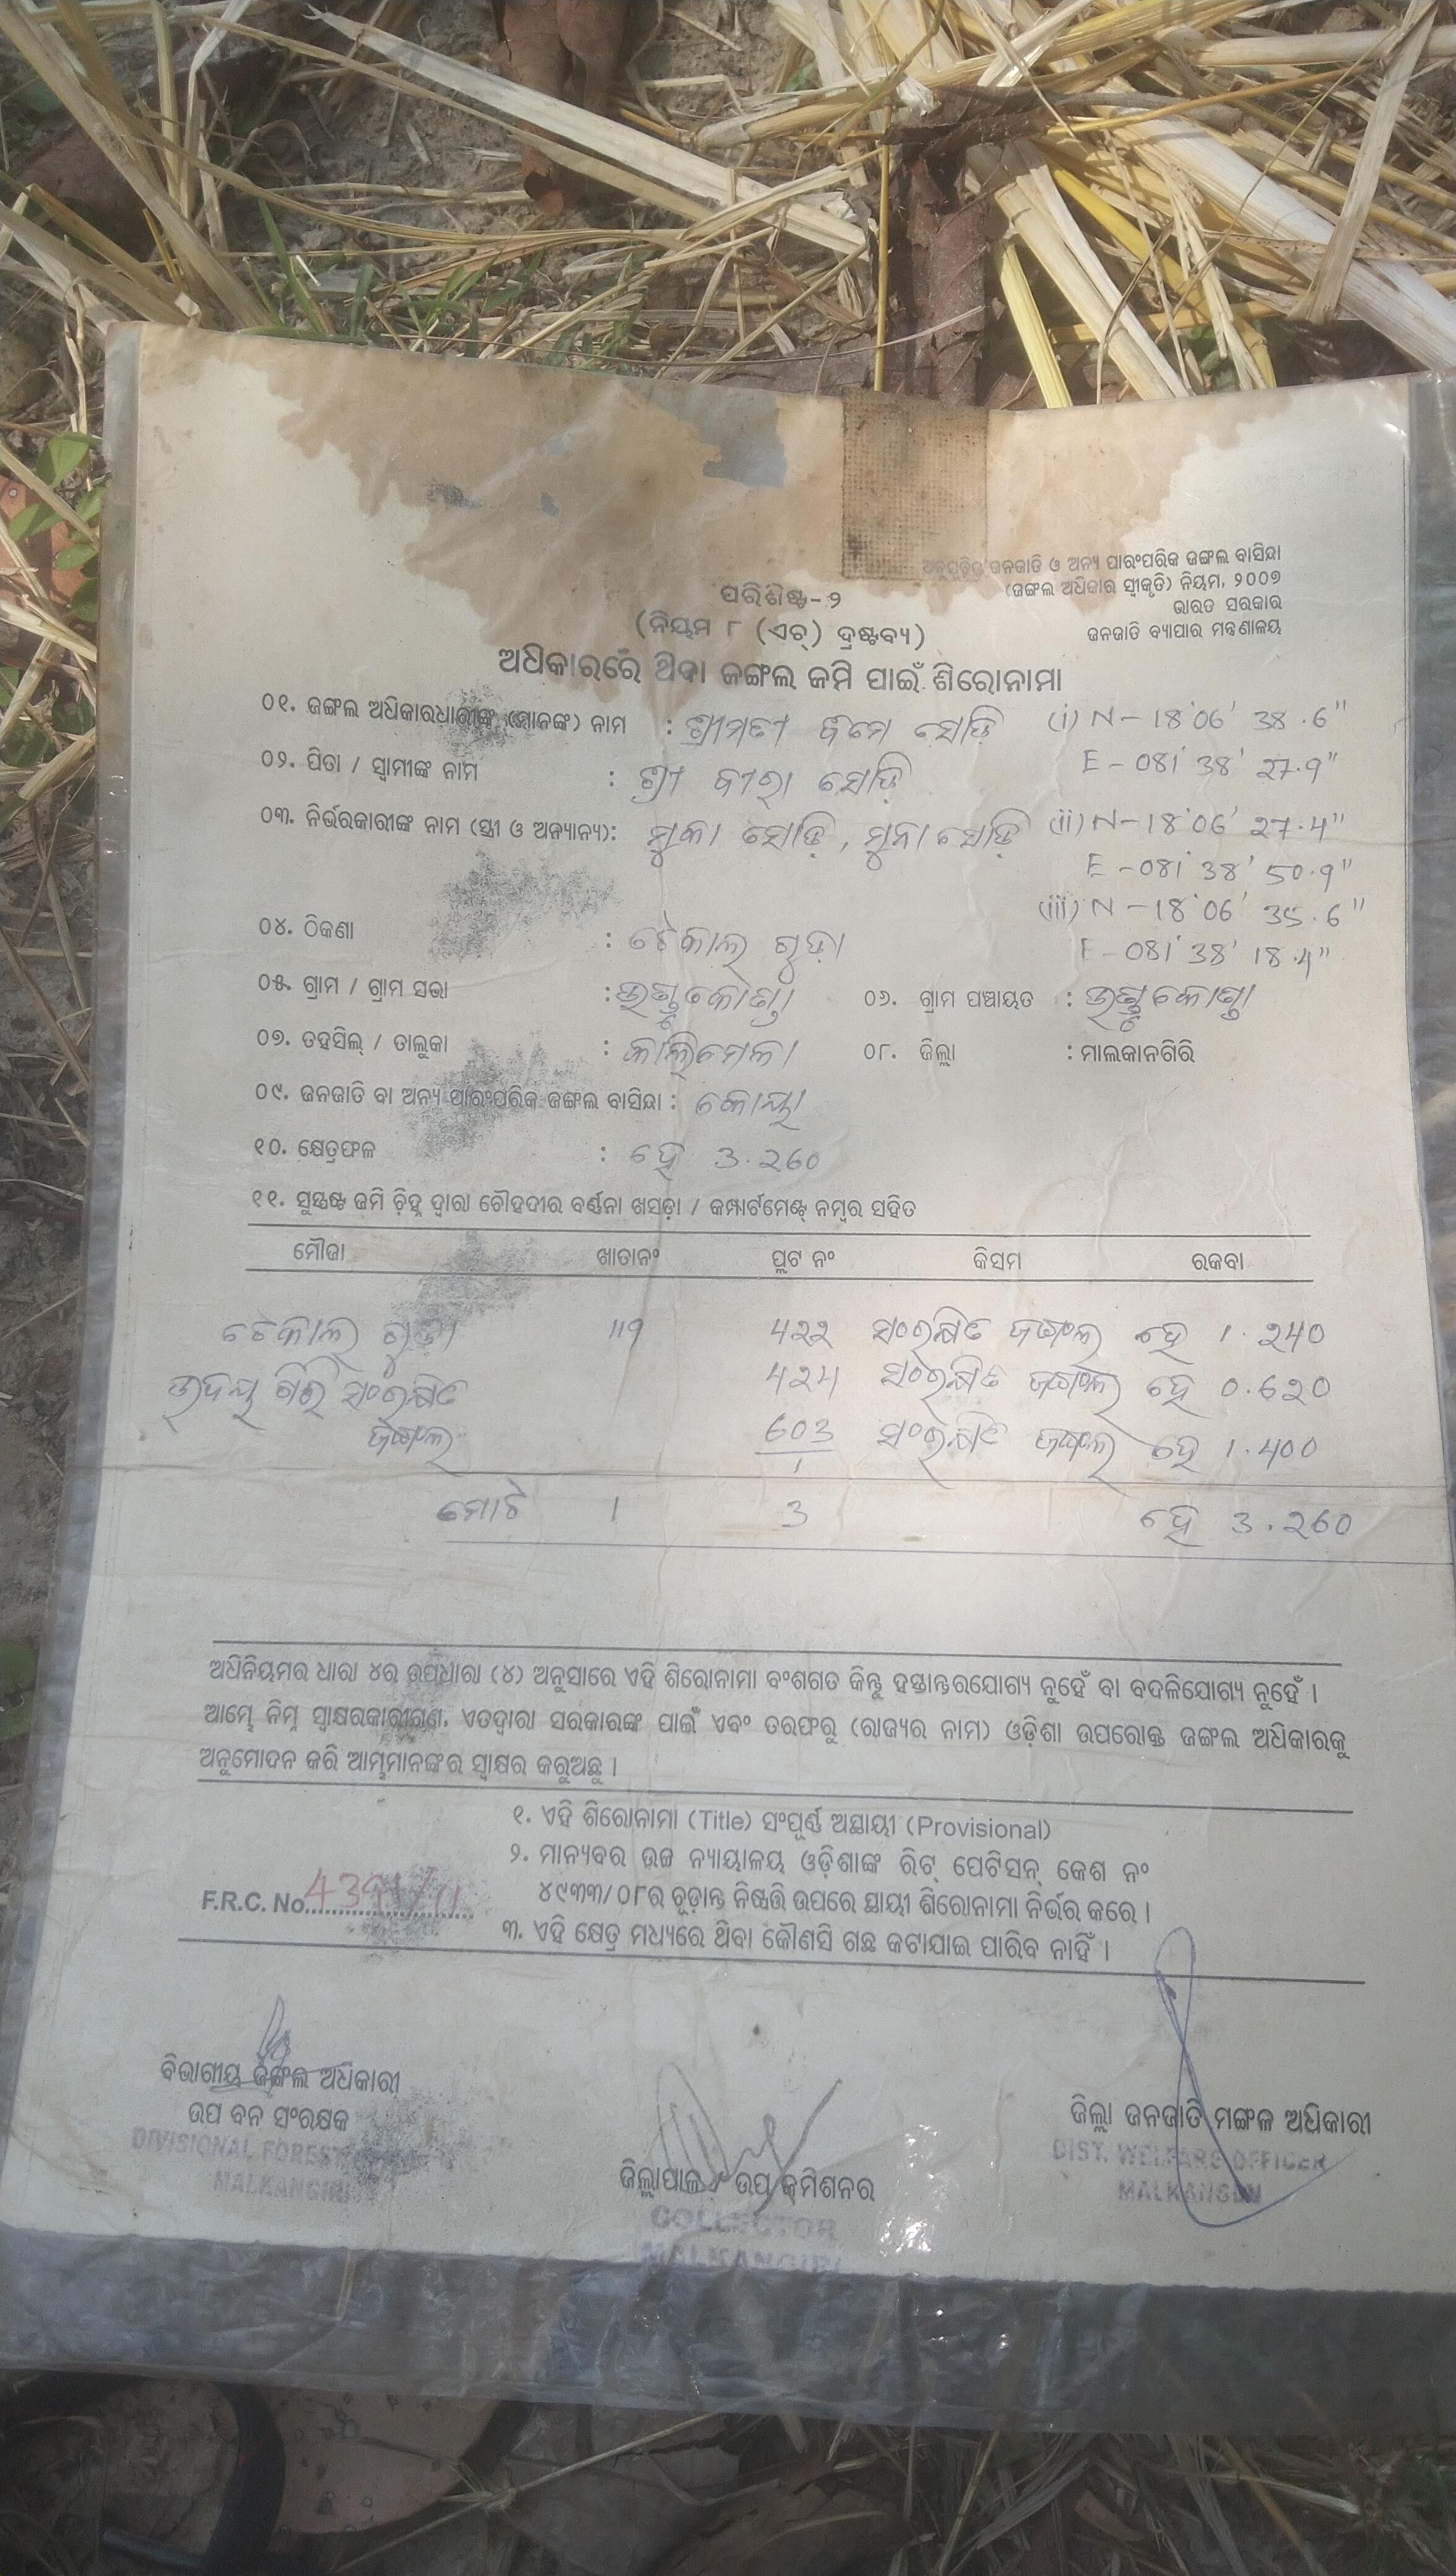 ଅନୁସୂଚିତ ଜନଜାତି ଓ ଅନ୍ୟ ପାରଂପରିକ ଜଙ୍ଗଲ ବାସିନ୍ଦା
(ଜଙ୍ଗଲ ଅଧିକାର ସ୍ୱୀକୃତି) ନିୟମ, ୨୦୦୭
ଭାରତ ସରକାର
ଜନଜାତି ବ୍ୟାପାର ମନ୍ତ୍ରଣାଳୟ
ପରିଶିଷ୍ଟ-୨
(ନିୟମ ୮ (ଏଚ୍) ଦ୍ରଷ୍ଟବ୍ୟ)
ଅଧିକାରରେ ଥିବା ଜଙ୍ଗଲ ଜମି ପାଇଁ ଶିରୋନାମା
୦୧. ଜଙ୍ଗଲ ଅଧିକାରଧାରୀଙ୍କ (ମାନଙ୍କ) ନାମ : ଶ୍ରୀମତୀ ସୋଡ଼ି (i) N-18°06' 38.6"
୦୨. ପିତା / ସ୍ୱାମୀଙ୍କ ନାମ : ଶ୍ରୀ ବୀରା ସୋଡ଼ି E-081° 38' 27.9"
୦୩. ନିର୍ଭରକାରୀଙ୍କ ନାମ (ସ୍ତ୍ରୀ ଓ ଅନ୍ୟାନ୍ୟ): ମୁକା ସୋଡ଼ି, ମୁନା ସୋଡ଼ି (ii) N-18°06' 27.4"
E-081° 38' 50.9"
(iii) N-18°06' 35.6"
୦୪. ଠିକଣା : ଟେକାଲ୍ ଗୁଡ଼ା E-081° 38' 18.4"
୦୫. ଗ୍ରାମ / ଗ୍ରାମ ସଭା : ୦୬. ଗ୍ରାମ ପଞ୍ଚାୟତ :
୦୭. ତହସିଲ୍ / ତାଲୁକା : କାଲିମେଳା ୦୮. ଜିଲ୍ଲା : ମାଲକାନଗିରି
୦୯. ଜନଜାତି ବା ଅନ୍ୟ ପାରଂପରିକ ଜଙ୍ଗଲ ବାସିନ୍ଦା : କୋୟା
୧୦. କ୍ଷେତ୍ରଫଳ : ହେ 3.260
୧୧. ସୁସ୍ପଷ୍ଟ ଜମି ଚିହ୍ନ ଦ୍ୱାରା ଚୌହଦୀର ବର୍ଣ୍ଣନା ଖସଡ଼ା / କମ୍ପାର୍ଟମେଣ୍ଟ୍ ନମ୍ବର ସହିତ
ମୌଜା ଖାତାନଂ ପ୍ଲଟ ନଂ କିସମ ରକବା
ଟେକାଲ୍ ଗୁଡ଼ା 119 422 ସଂରକ୍ଷିତ ଜଙ୍ଗଲ ହେ 1.240
ଉଦୟ ଗିରି ସଂରକ୍ଷିତ 424 ସଂରକ୍ଷିତ ଜଙ୍ଗଲ ହେ 0.620
ଜଙ୍ଗଲ 603/1 ସଂରକ୍ଷିତ ଜଙ୍ଗଲ ହେ 1.400
ମୋଟ 1 3 ହେ 3.260
ଅଧିନିୟମର ଧାରା ୪ର ଉପଧାରା (୪) ଅନୁସାରେ ଏହି ଶିରୋନାମା ବଂଶଗତ କିନ୍ତୁ ହସ୍ତାନ୍ତରଯୋଗ୍ୟ ନୁହେଁ ବା ବଦଳିଯୋଗ୍ୟ ନୁହେଁ ।
ଆମ୍ଭେ ନିମ୍ନ ସ୍ୱାକ୍ଷରକାରୀଗଣ, ଏତଦ୍ୱାରା ସରକାରଙ୍କ ପାଇଁ ଏବଂ ତରଫରୁ (ରାଜ୍ୟର ନାମ) ଓଡ଼ିଶା ଉପରୋକ୍ତ ଜଙ୍ଗଲ ଅଧିକାରକୁ
ଅନୁମୋଦନ କରି ଆମ୍ଭମାନଙ୍କର ସ୍ୱାକ୍ଷର କରୁଅଛୁ ।
୧. ଏହି ଶିରୋନାମା (Title) ସଂପୂର୍ଣ୍ଣ ଅସ୍ଥାୟୀ (Provisional)
୨. ମାନ୍ୟବର ଉଚ୍ଚ ନ୍ୟାୟାଳୟ ଓଡ଼ିଶାଙ୍କ ରିଟ୍ ପେଟିସନ୍ କେଶ ନଂ
୪୯୩୩/୦୮ର ଚୂଡ଼ାନ୍ତ ନିଷ୍ପତ୍ତି ଉପରେ ସ୍ଥାୟୀ ଶିରୋନାମା ନିର୍ଭର କରେ ।
F.R.C. No. 4391/11
୩. ଏହି କ୍ଷେତ୍ର ମଧ୍ୟରେ ଥିବା କୌଣସି ଗଛ କଟାଯାଇ ପାରିବ ନାହିଁ ।
ବିଭାଗୀୟ ଜଙ୍ଗଲ ଅଧିକାରୀ
ଉପ ବନ ସଂରକ୍ଷକ
DIVISIONAL FOREST
MALKANGIRI
ଜିଲ୍ଲାପାଳ ଉପ କମିଶନର
COLLECTOR
MALKANGIRI
ଜିଲ୍ଲା ଜନଜାତି ମଙ୍ଗଳ ଅଧିକାରୀ
DIST. WELFARE OFFICER
MALKANGIRI